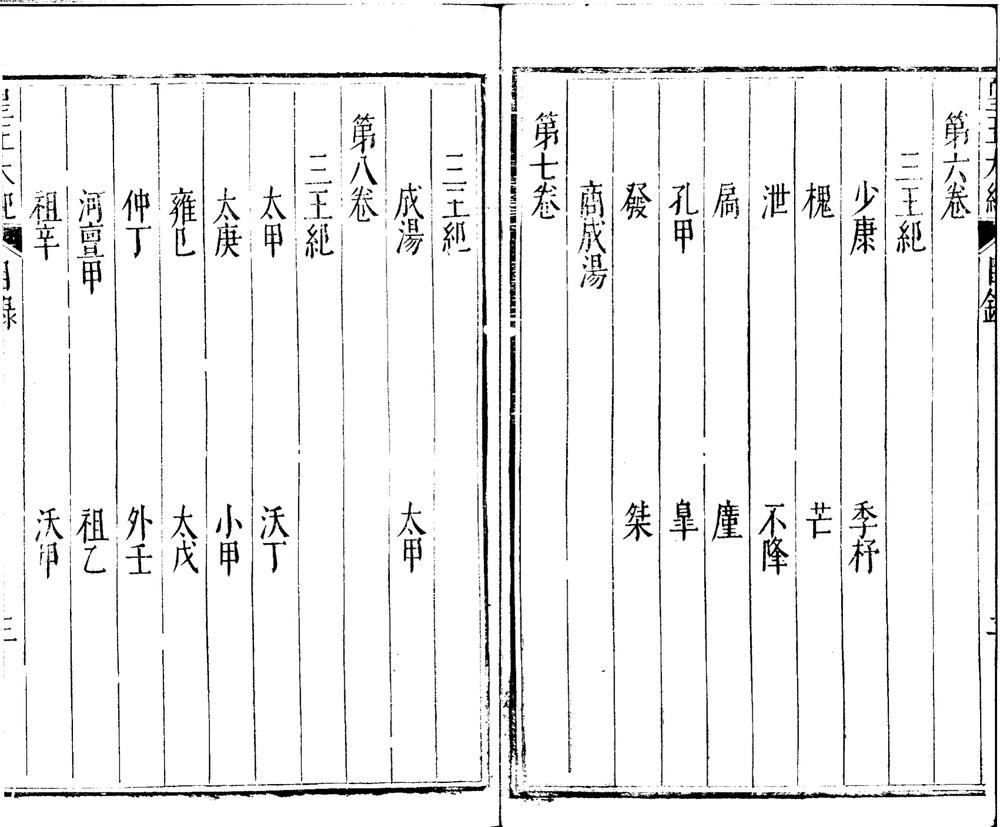 第六卷
三王紀
少康 季杼
槐 芒
泄 不降
扃 廑
孔甲 皐
發 桀
商成湯
第七卷
三王紀
成湯 太甲
第八卷
三王紀
太甲 沃丁
太庚 小甲
雍己 太戊
仲丁 外壬
河亶甲 祖乙
祖辛 沃甲
皇王大紀 目錄 三